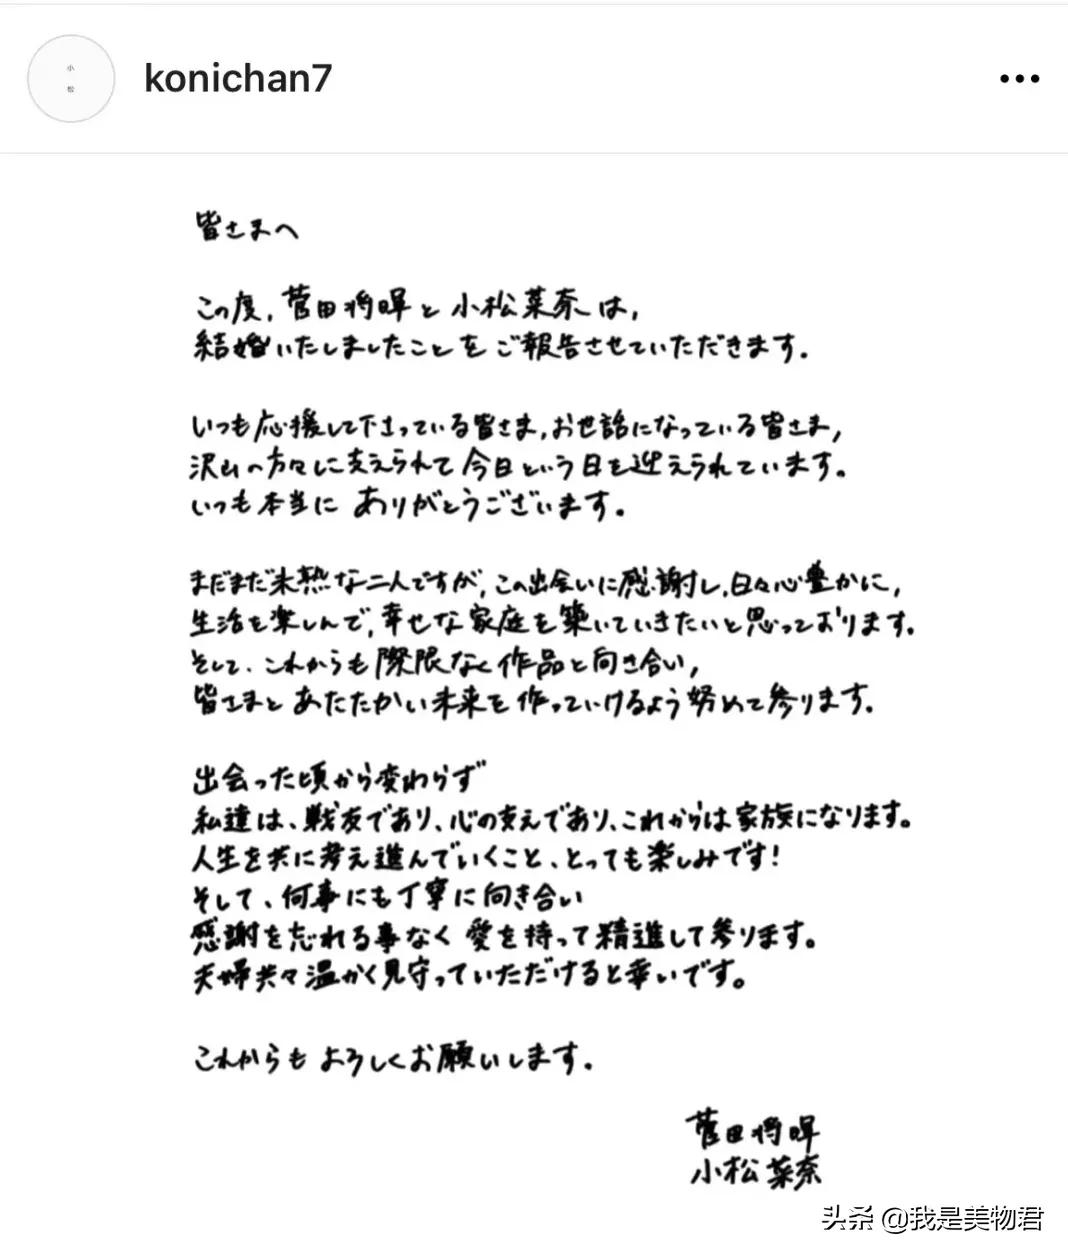 小
松
konichan7
皆さまへ
この度、菅田将暉と小松菜奈は、
結婚いたしましたことをご報告させていただきます。
いつも応援して下さっている皆さま、お世話になっている皆さま、
沢山の方々に支えられて今日という日を迎えられています。
いつも本当に ありがとうございます。
まだまだ未熟な二人ですが、この出会いに感謝し、日々心豊かに、
生活を楽しんで、幸せな家庭を築いていきたいと思っております。
そして、これからも際限なく作品と向き合い、
皆さまと あたたかい未来を作っていけるよう努めて参ります。
出会った頃から変わらず
私達は、戦友であり、心の支えであり、これからは家族になります。
人生を共に考え進んでいくこと、とっても楽しみです!
そして、何事にも丁寧に向き合い
感謝を忘れる事なく 愛を持って精進して参ります。
夫婦共々温かく見守っていただけると幸いです。
これからも よろしくお願いします。
菅田将暉
小松菜奈
头条 @我是美物君